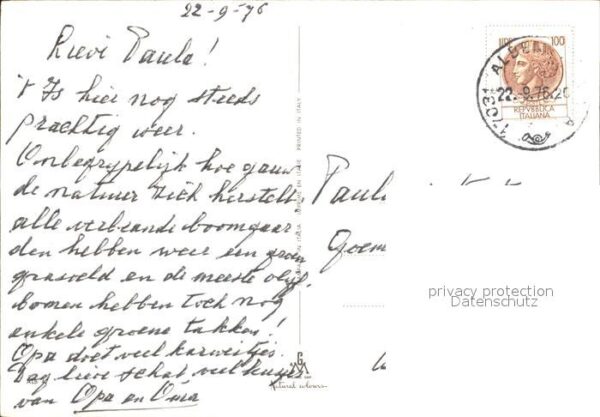 22-9-76
Lieve Paula!
't Is hier nog steeds
prachtig weer.
Onbegrypelijk hoe gauw
de natuur zich herstelt
alle verbrande boomgaar
den hebben weer een groen
grasveld en de meeste olijf
bomen hebben toch nog
enkele groene takken!
Opa doet veel karweitjes.
Dag lieve schat veel kusjes
van Opa en Oma
PRINTED IN ITALY
natural colours
LIRE 100
REPVBBLICA
ITALIANA
22.-9.76.20
Paul
privacy protection
Datenschutz